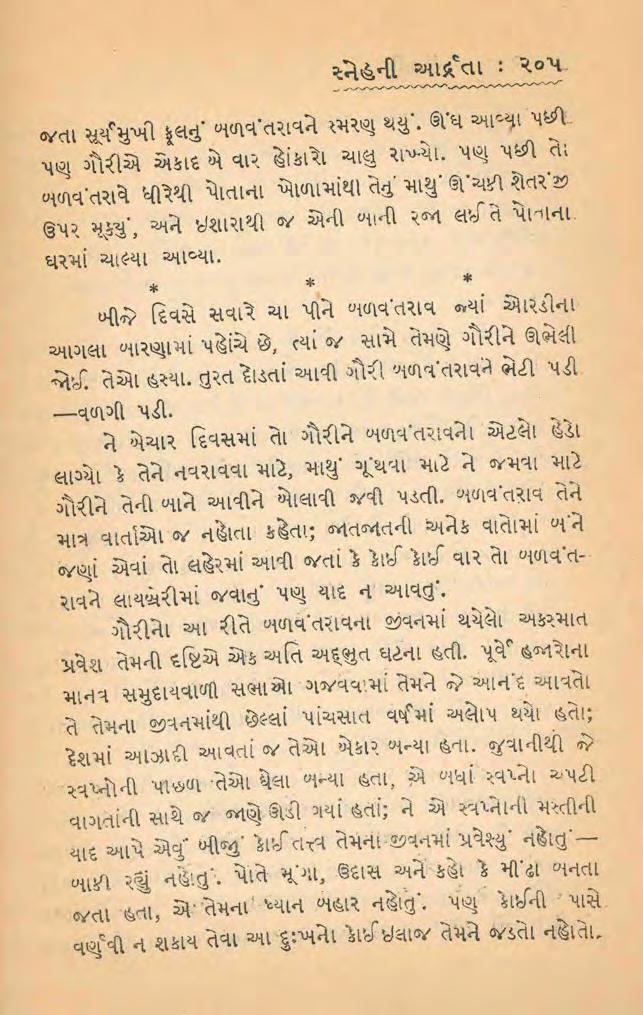 સ્નેહની આર્દ્રતા : ૨૦૫
જતા સૂર્યમુખી ફૂલનું બળવંતરાવને સ્મરણ થયું. ઊંઘ આવ્યા પછી
પણ ગૌરીએ એકાદ બે વાર હોંકારો ચાલુ રાખ્યો. પણ પછી તો
બળવંતરાવે ધીરેથી પોતાના ખોળામાંથી તેનું માથું ઊંચકી શેતરંજી
ઉપર મૂક્યું, અને ઇશારાથી જ એની બાની રજા લઈ તે પોતાના
ઘરમાં ચાલ્યા આવ્યા.
* * *
બીજે દિવસે સવારે ચા પીને બળવંતરાવ જ્યાં ઓરડીના
આગલા બારણામાં પહોંચે છે, ત્યાં જ સામે તેમણે ગૌરીને ઊભેલી
જોઈ. તેઓ હસ્યા. તુરત દોડતાં આવી ગૌરી બળવંતરાવને ભેટી પડી
—વળગી પડી.
ને બેચાર દિવસમાં તો ગૌરીને બળવંતરાવનો એટલો હેડો
લાગ્યો કે તેને નવરાવવા માટે, માથું ગૂંથવા માટે ને જમવા માટે
ગૌરીને તેની બાને આવીને બોલાવી જવી પડતી. બળવંતરાવ તેને
માત્ર વાર્તાઓ જ નહોતા કહેતા; જાતજાતની અનેક વાતોમાં બંને
જણાં એવાં તો લહેરમાં આવી જતાં કે કોઈ કોઈ વાર તો બળવંત-
રાવને લાયબ્રેરીમાં જવાનું પણ યાદ ન આવતું.
ગૌરીનો આ રીતે બળવંતરાવના જીવનમાં થયેલો અકસ્માત
પ્રવેશ તેમની દૃષ્ટિએ એક અતિ અદ્ભુત ઘટના હતી. પૂર્વે હજારોના
માનવ સમુદાયવાળી સભાઓ ગજવવામાં તેમને જે આનંદ આવતો
તે તેમના જીવનમાંથી છેલ્લાં પાંચસાત વર્ષમાં અલોપ થયો હતો;
દેશમાં આઝાદી આવતાં જ તેઓ બેકાર બન્યા હતા. જુવાનીથી જે
સ્વપ્નોની પાછળ તેઓ ઘેલા બન્યા હતા, એ બધાં સ્વપ્નો ચપટી
વાગતાંની સાથે જ જાણે ઊડી ગયાં હતાં; ને એ સ્વપ્નોની મસ્તીની
યાદ આપે એવું બીજું કોઈ તત્ત્વ તેમના જીવનમાં પ્રવેશ્યું નહોતું—
બાકી રહ્યું નહોતું. પોતે મૂંગા, ઉદાસ અને કહો કે મીંઢા બનતા
જતા હતા, એ તેમના ધ્યાન બહાર નહોતું. પણ કોઈની પાસે
વર્ણવી ન શકાય તેવા આ દુઃખનો કોઈ ઇલાજ તેમને જડતો નહોતો.